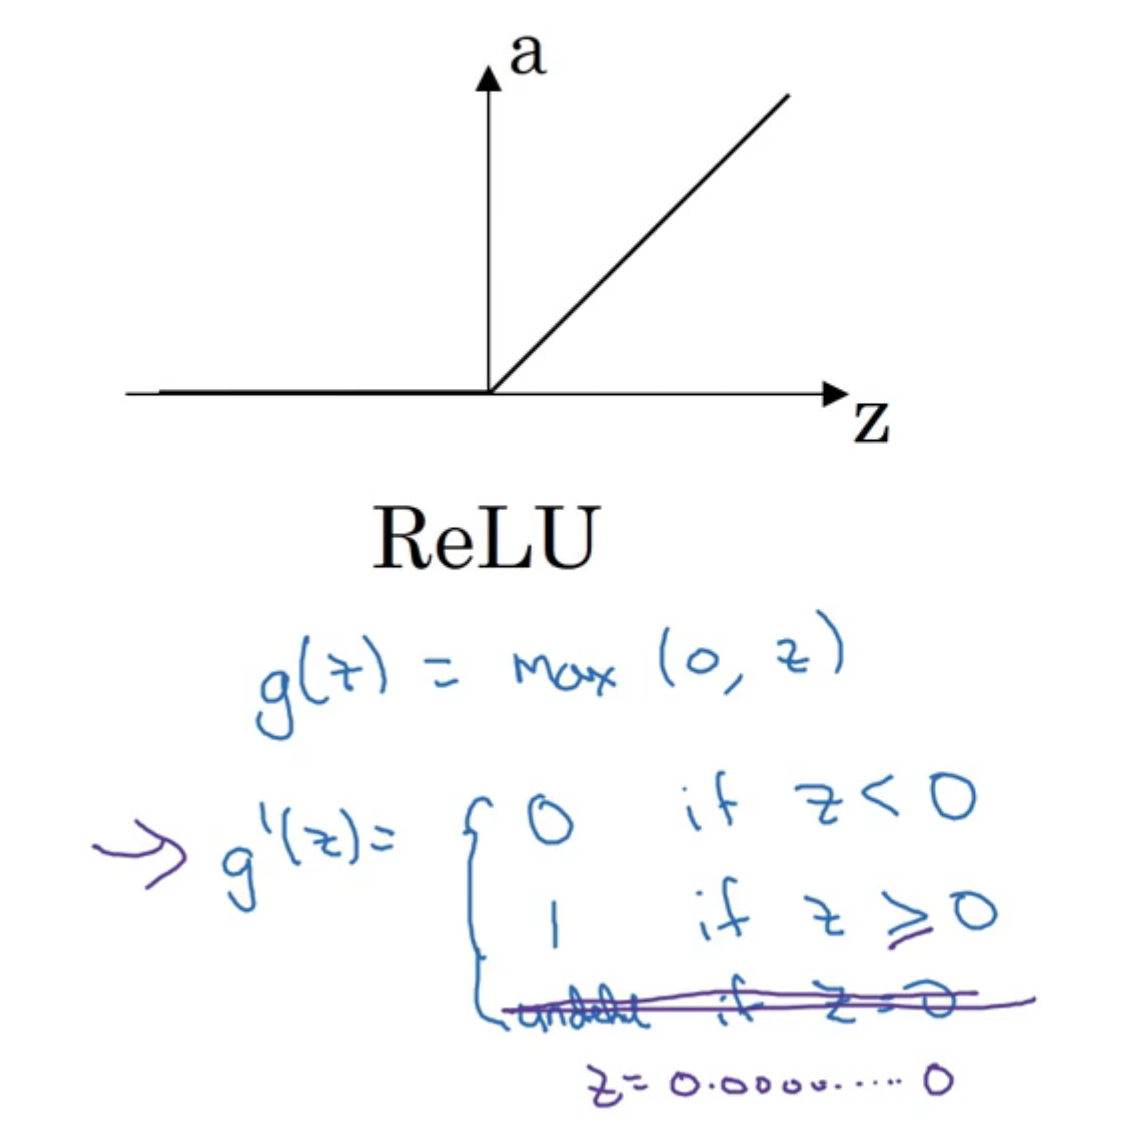 a
z
ReLU
g(z) = max (0, z)
→ g'(z) = { 0 if z < 0
1 if z ≥ 0
if z = 0
z = 0.0000..... 0